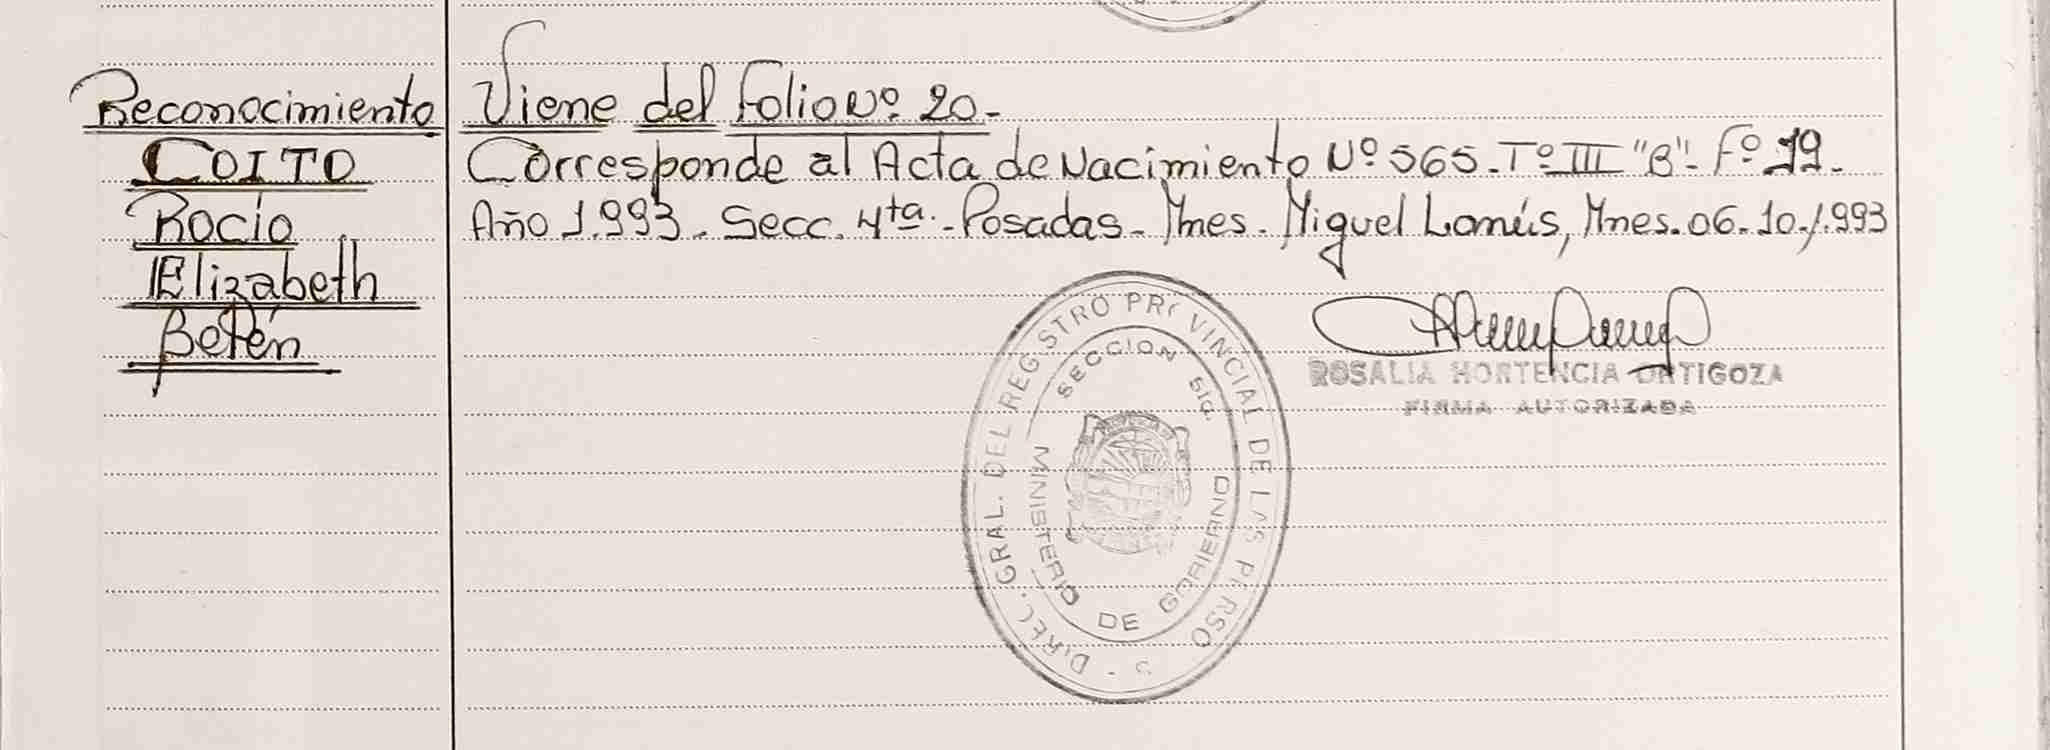 Reconocimiento
COITO
Rocío
Elizabeth
Belén
Viene del Folio Nº. 20-
Corresponde al Acta de Nacimiento Nº 565. Tº III "B"- Fº 19.
Año 1.993. Secc. 4ta.- Posadas- Mnes. Miguel Lanús, Mnes. 06-10-1.993
ROSALIA HORTENCIA ORTIGOZA
FIRMA AUTORIZADA
DIREC. GRAL. DEL REGISTRO PROVINCIAL DE LAS PERSO S -
SECCION
MINISTERIO DE GOBIERNO